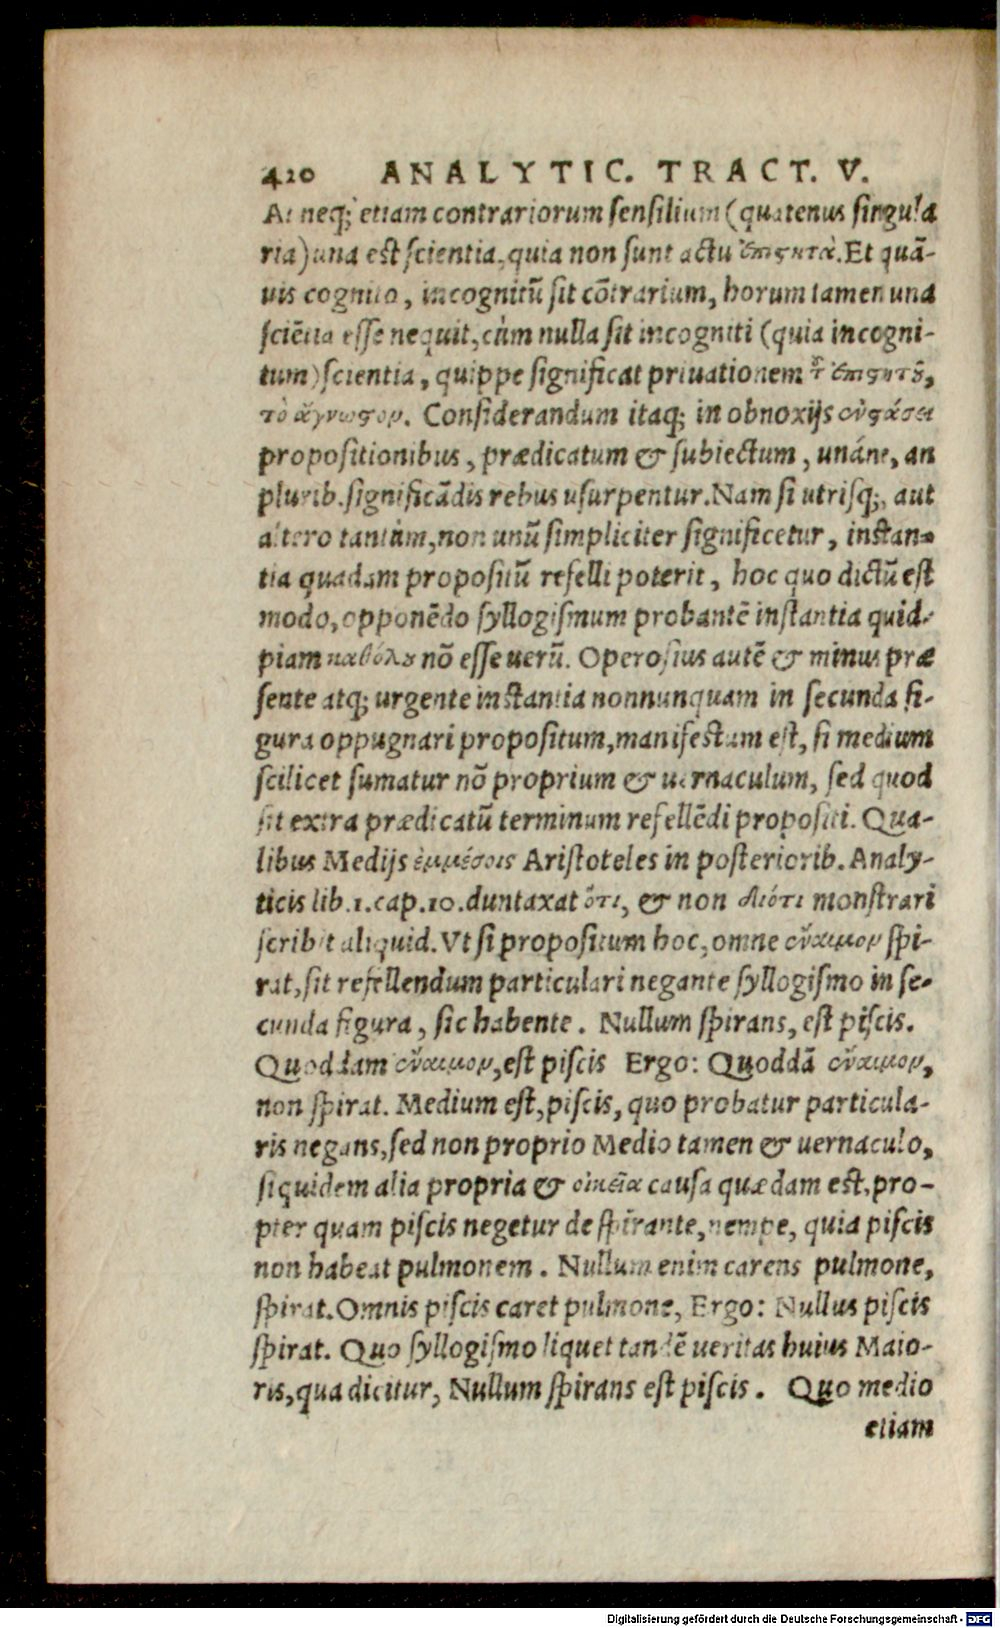 420 ANALYTIC. TRACT. V.
At neq; etiam contrariorum ſenſilium (quatenus ſingula
ria) una eſt ſcientia, quia non ſunt actu ἐπιςητὰ. Et quā-
uis cognito, incognitū ſit cōtrarium, horum tamen una
ſciētia eſſe nequit, cùm nulla ſit incogniti (quia incogni-
tum) ſcientia, quippe ſignificat priuationem τ͂ ἐπιςητȣ͂,
τὸ ἄγνωςον. Conſiderandum itaq; in obnoxijs ἐνςάσει
propoſitionibus, prædicatum & ſubiectum, unáne, an
plurib. ſignificādis rebus uſurpentur. Nam ſi utriſq;, aut
altero tantùm, non unū ſimpliciter ſignificetur, inſtan-
tia quadam propoſitū refelli poterit, hoc quo dictū eſt
modo, opponēdo ſyllogiſmum probantē inſtantia quid-
piam καθόλȣ nō eſſe uerū. Operoſius autē & minus præ
ſente atq; urgente inſtantia nonnunquam in ſecunda fi-
gura oppugnari propoſitum, manifeſtum eſt, ſi medium
ſcilicet ſumatur nō proprium & uernaculum, ſed quod
ſit extra prædicatū terminum refellēdi propoſiti. Qua-
libus Medijs ἐμμέσοις Ariſtoteles in poſteriorib. Analy-
ticis lib. 1. cap. 10. duntaxat ὅτι, & non διότι monſtrari
ſcribit aliquid. Vt ſi propoſitum hoc, omne ἔναιμον ſpi-
rat, ſit refellendum particulari negante ſyllogiſmo in ſe-
cunda figura, ſic habente. Nullum ſpirans, eſt piſcis.
Quoddam ἔναιμον, eſt piſcis Ergo: Quoddā ἔναιμον,
non ſpirat. Medium eſt, piſcis, quo probatur particula-
ris negans, ſed non proprio Medio tamen & uernaculo,
ſiquidem alia propria & οἰκεῖα cauſa quædam eſt, pro-
pter quam piſcis negetur de ſpirante, nempe, quia piſcis
non habeat pulmonem. Nullum enim carens pulmone,
ſpirat. Omnis piſcis caret pulmone, Ergo: Nullus piſcis
ſpirat. Quo ſyllogiſmo liquet tandē ueritas huius Maio-
ris, qua dicitur, Nullum ſpirans eſt piſcis. Quo medio
etiam
Digitalisierung gefördert durch die Deutsche Forschungsgemeinschaft - DFG